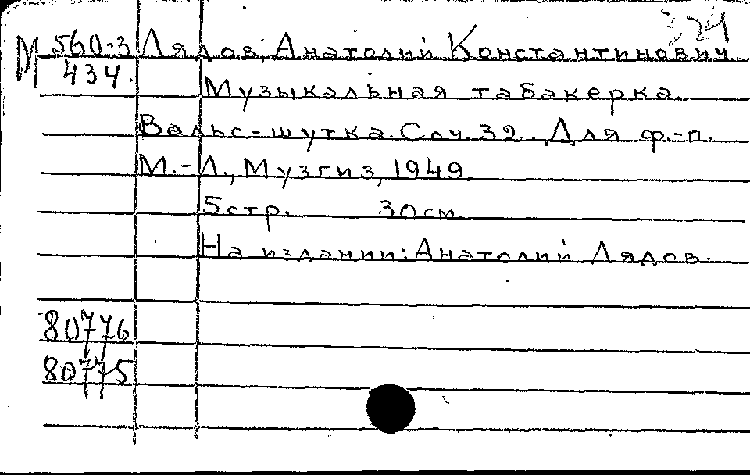 324
М 560-3 Лядов, Анатолий Константинович
434. Музыкальная табакерка.
Вальс-шутка. Соч. 32. Для ф.-п.
М.-Л., Музгиз, 1949.
5 стр. 30 см.
На издании: Анатолий Лядов.
80776
80775